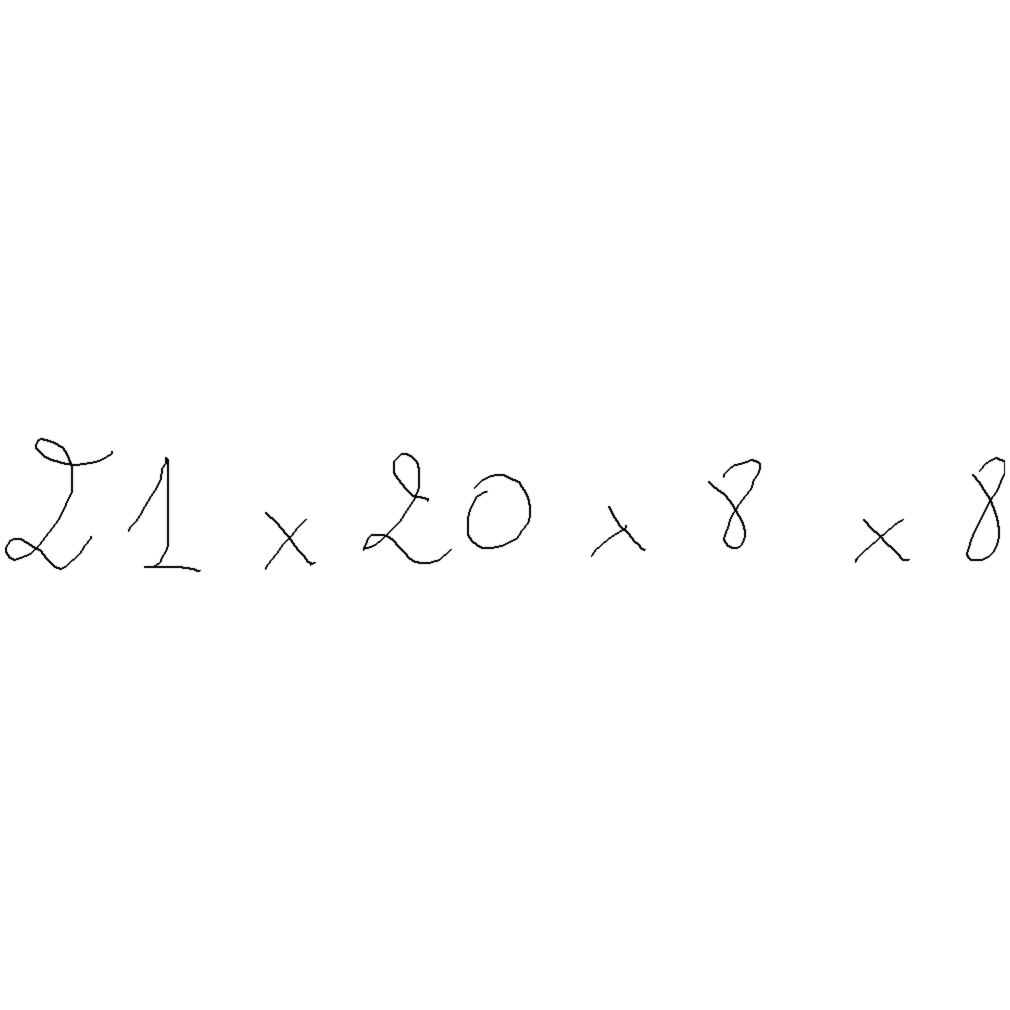 21 × 20 × 8 × 8